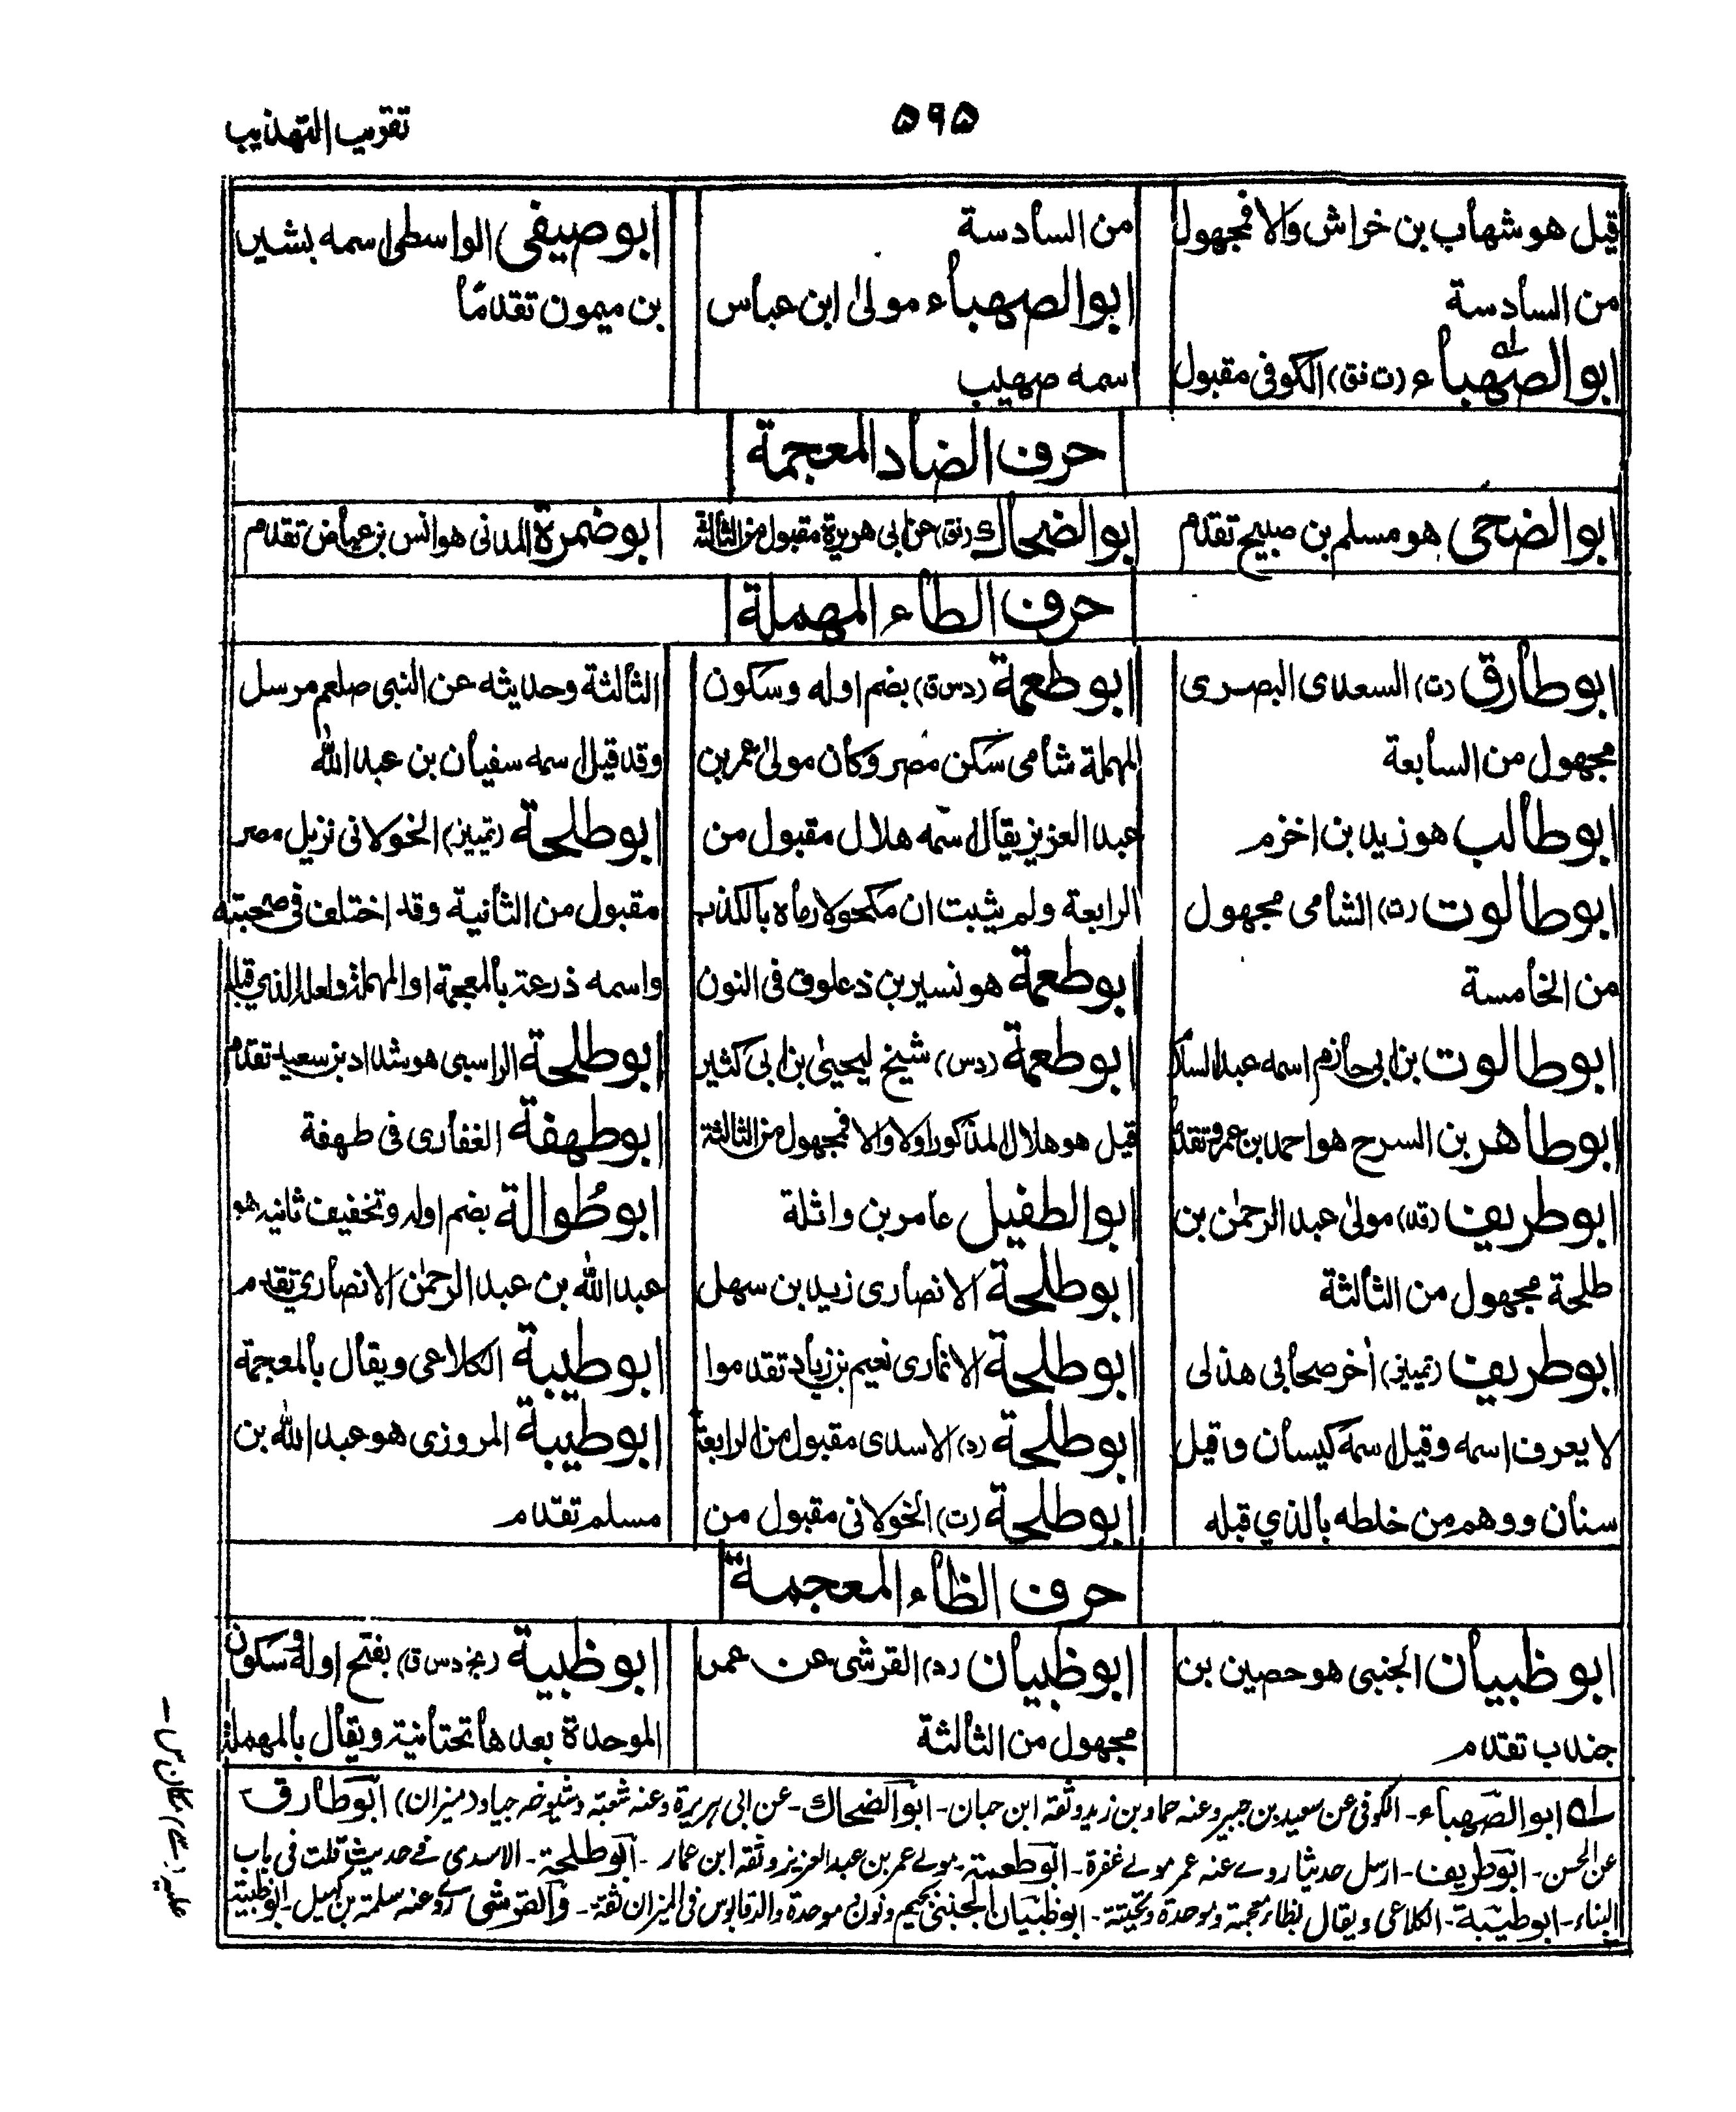 تقريب التهذيب
۵۹۵
قيل هو شهاب بن خراش والا فمجهول
من السادسة
ابو الصهباء (ت فق) الكوفى مقبول
من السادسة
ابو الصهباء مولىٰ ابن عباس
اسمه صهيب
ابو صيفى الواسطى اسمه بشير
بن ميمون تقدما
حرف الضاد المعجمة
ابو الضحى هو مسلم بن صبيح تقدم
ابو الضحاك (فق) عن ابى هريرة مقبول من الثالثة
ابو ضمرة المدنى هو انس بن عياض تقدم
حرف الطاء المهملة
ابو طارق (ت) السعدى البصرى
مجهول من السابعة
ابو طالب هو زيد بن اخزم
ابو طالوت (ت) الشامى مجهول
من الخامسة
ابو طالوت بن ابى حازم اسمه عبد السلام
ابو طاهر بن السرح هو احمد بن عمرو تقدم
ابو طريف (قد) مولىٰ عبد الرحمٰن بن
طلحة مجهول من الثالثة
ابو طريف (تمييز) اخر صحابى هذلى
لا يعرف اسمه وقيل اسمه كيسان وقيل
سنان ووهم من خلطه بالذي قبله
ابو طعمة (دس ق) بضم اوله وسكون
المهملة شامى سكن مصر وكان مولىٰ عمر بن
عبد العزيز يقال اسمه هلال مقبول من
الرابعة ولم يثبت ان مكحولا رماه بالكذب
ابو طعمة هو نسير بن ذعلوق فى النون
ابو طعمة (دس) شيخ ليحيىٰ بن ابى كثير
قيل هو هلال المذكور اولا والا فمجهول من الثالثة
ابو الطفيل عامر بن واثلة
ابو طلحة الانصارى زيد بن سهل
ابو طلحة الانمارى نعيم بن زياد تقدموا
ابو طلحة (د) الاسدى مقبول من الرابعة
ابو طلحة (ت) الخولانى مقبول من
الثالثة وحديثه عن النبى صلعم مرسل
وقد قيل اسمه سفيان بن عبد الله
ابو طلحة (تمييز) الخولانى نزيل مصر
مقبول من الثانية وقد اختلف فى صحبته
واسمه ذرعة بالمعجمة او المهملة ولعله الذي قبله
ابو طلحة الراسبى هو شداد بن سعيد تقدم
ابو طهفة الغفارى فى طهفة
ابو طُوالة بضم اوله وتخفيف ثانيه هو
عبد الله بن عبد الرحمٰن الانصاري تقدم
ابو طيبة الكلاعى ويقال بالمعجمة
ابو طيبة المروزى هو عبد الله بن
مسلم تقدم
حرف الظاء المعجمة
ابو ظبيان الجنبى هو حصين بن
جندب تقدم
ابو ظبيان (د) القرشى عن عمر
مجهول من الثالثة
ابو ظبية (بخ دس ق) بفتح اوله وسكون
الموحدة بعدها تحتانية ويقال بالمهملة
له ابو الصهباء - الكوفى عن سعيد بن جبير وعنه حماد بن زيد وثقه ابن حبان - ابو الضحاك - عن ابى هريرة وعنه شعبة وشيوخه جياد (ميزان) ابو طارق
عن الحسن - ابو طريف - ارسل حديثا روے عنه عمر مولے غفرة - ابو طعمة - مولے عمر بن عبد العزيز وثقه ابن عمار - ابو طلحة - الاسدى فے حديث قلت فى باب
البناء - ابو طيبة - الكلاعى ويقال بظاء معجمة وموحدة وتحتية - ابو ظبيان الجنبى بجيم ونون موحدة والد قابوس فى الميزان ثقة - والقرشى روے عنه سلمة بن كهيل - ابو ظبية